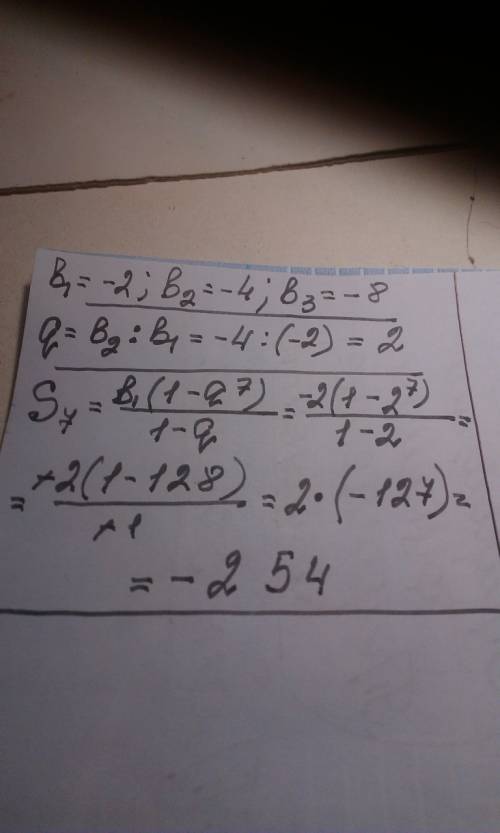 b₁ = -2; b₂ = -4; b₃ = -8
q = b₂ : b₁ = -4 : (-2) = 2
S₇ = b₁(1 - q⁷) / 1 - q = -2(1 - 2⁷) / 1 - 2 =
= +2(1 - 128) / +1 = 2 · (-127) =
= - 2 54